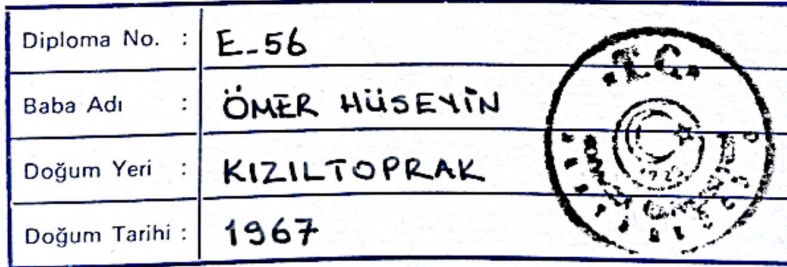 Diploma No. : E-56
Baba Adı : ÖMER HÜSEYİN
Doğum Yeri : KIZILTOPRAK
Doğum Tarihi : 1967
T.C.